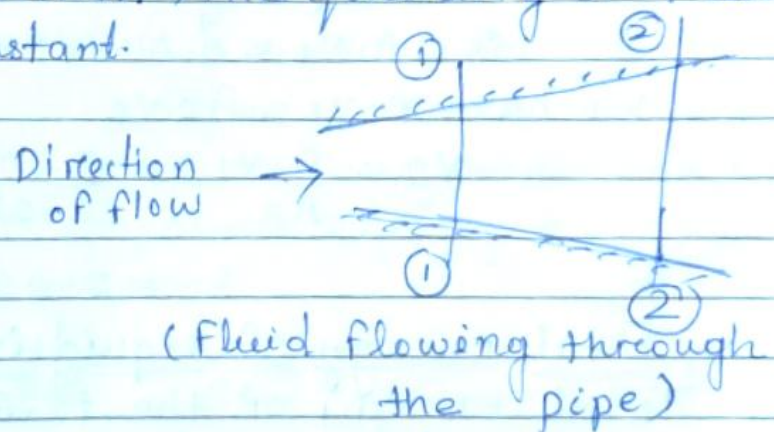 stant.
① ②
Direction
of flow
① ②
(Fluid flowing through
the pipe)